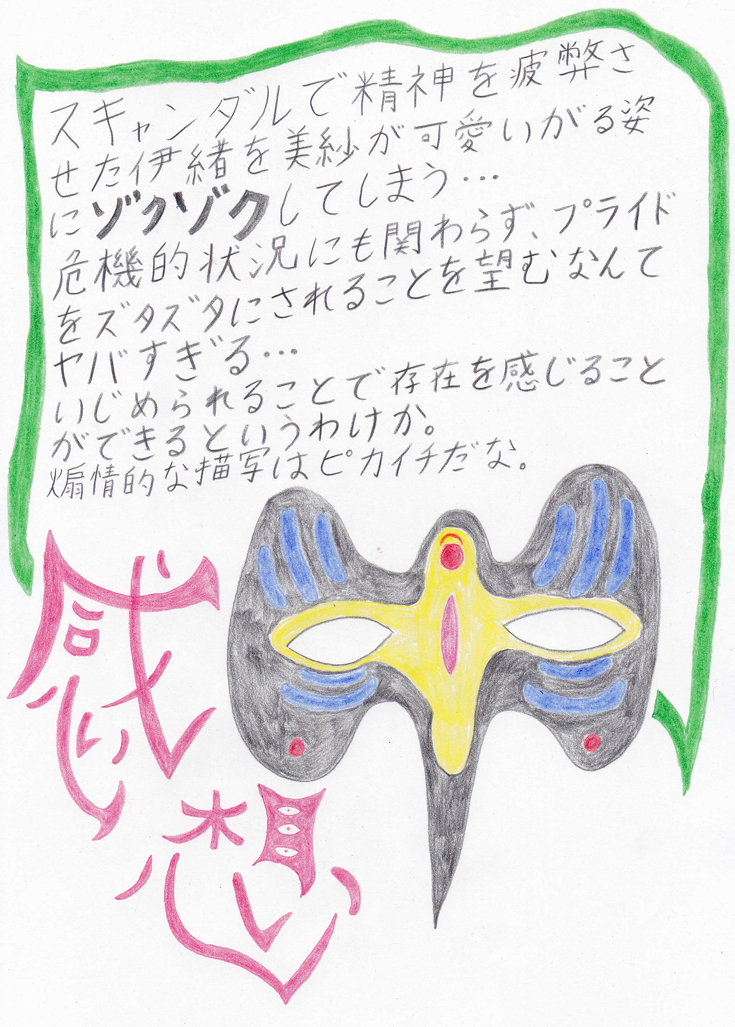 スキャンダルで精神を疲弊さ
せた伊緒を美紗が可愛いがる姿
にゾクゾクしてしまう…
危機的状況にも関わらず、プライド
をズタズタにされることを望むなんて
ヤバすぎる…
いじめられることで存在を感じること
ができるというわけか。
煽情的な描写はピカイチだな。
感
想